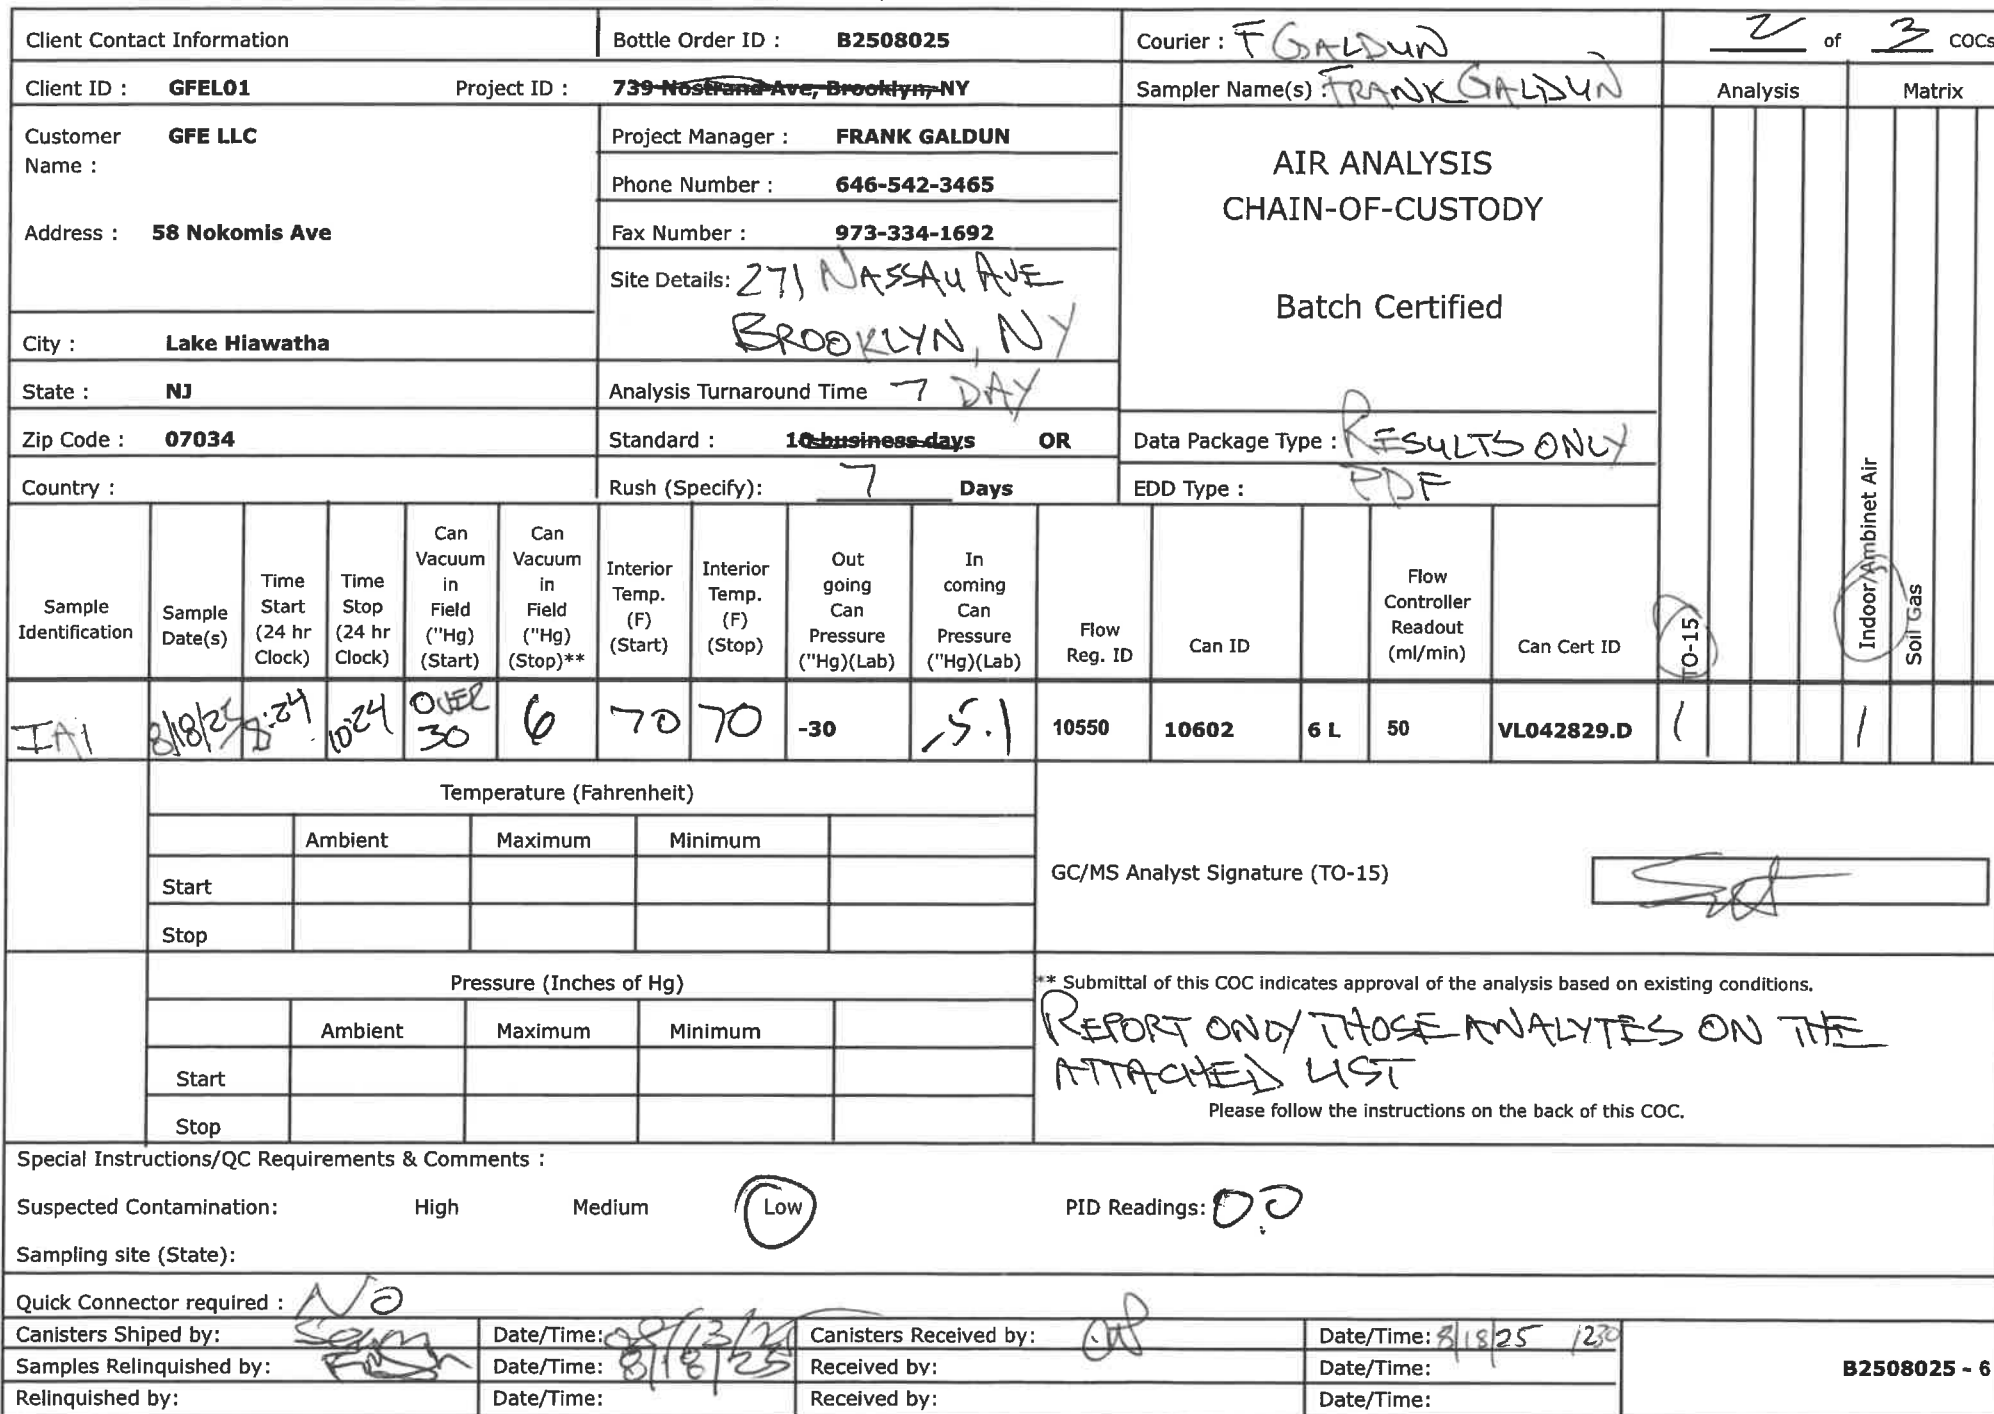 Client Contact Information Bottle Order ID : B2508025 Courier : F GALDUN 2 of 3 COCs
Client ID : GFEL01 Project ID : 739 Nostrand Ave, Brooklyn, NY Sampler Name(s) : FRANK GALDUN Analysis Matrix
Customer Name : GFE LLC
Project Manager : FRANK GALDUN
Phone Number : 646-542-3465
Address : 58 Nokomis Ave
Fax Number : 973-334-1692
Site Details: 271 NASSAU AVE
BROOKLYN, NY
AIR ANALYSIS
CHAIN-OF-CUSTODY
Batch Certified
City : Lake Hiawatha
State : NJ
Analysis Turnaround Time 7 DAY
Zip Code : 07034
Standard : 10 business days OR
Data Package Type : RESULTS ONLY
Country :
Rush (Specify): 7 Days
EDD Type : PDF
Sample Identification
Sample Date(s)
Time Start (24 hr Clock)
Time Stop (24 hr Clock)
Can Vacuum in Field ("Hg) (Start)
Can Vacuum in Field ("Hg) (Stop)**
Interior Temp. (F) (Start)
Interior Temp. (F) (Stop)
Out going Can Pressure ("Hg)(Lab)
In coming Can Pressure ("Hg)(Lab)
Flow Reg. ID
Can ID
Flow Controller Readout (ml/min)
Can Cert ID
TO-15
Indoor/Ambinet Air
Soil Gas
IA1 8/18/25 8:24 10:24 OVER 30 6 70 70 -30 -5.1 10550 10602 6 L 50 VL042829.D 1 1
Temperature (Fahrenheit)
Ambient Maximum Minimum
Start
Stop
GC/MS Analyst Signature (TO-15)
Pressure (Inches of Hg)
Ambient Maximum Minimum
Start
Stop
** Submittal of this COC indicates approval of the analysis based on existing conditions.
REPORT ONLY THOSE ANALYTES ON THE
ATTACHED LIST
Please follow the instructions on the back of this COC.
Special Instructions/QC Requirements & Comments :
Suspected Contamination: High Medium Low PID Readings: 0.0
Sampling site (State):
Quick Connector required : NO
Canisters Shiped by: Date/Time: 08/13/25 Canisters Received by: Date/Time: 8/18/25 1230
Samples Relinquished by: Date/Time: 8/18/25 Received by: Date/Time:
Relinquished by: Date/Time: Received by: Date/Time:
B2508025 - 6